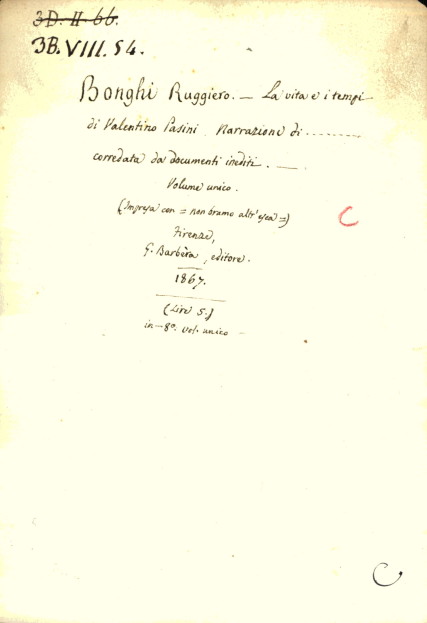 3D. II. 66.
3B. VIII. 54.
Bonghi Ruggiero. — La vita e i tempi
di Valentino Pasini. Narrazione di ..........
corredata da documenti inediti. ——
Volume unico.
(Impresa con = non bramo altr'esca =)
C
Firenze,
G. Barbèra, editore.
1867.
(Lire 5.)
in-8º. vol. unico —
C